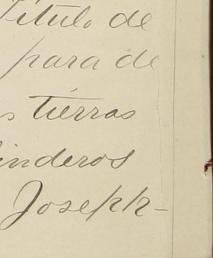 Título de
para de
s tierras
linderos
Joseph-